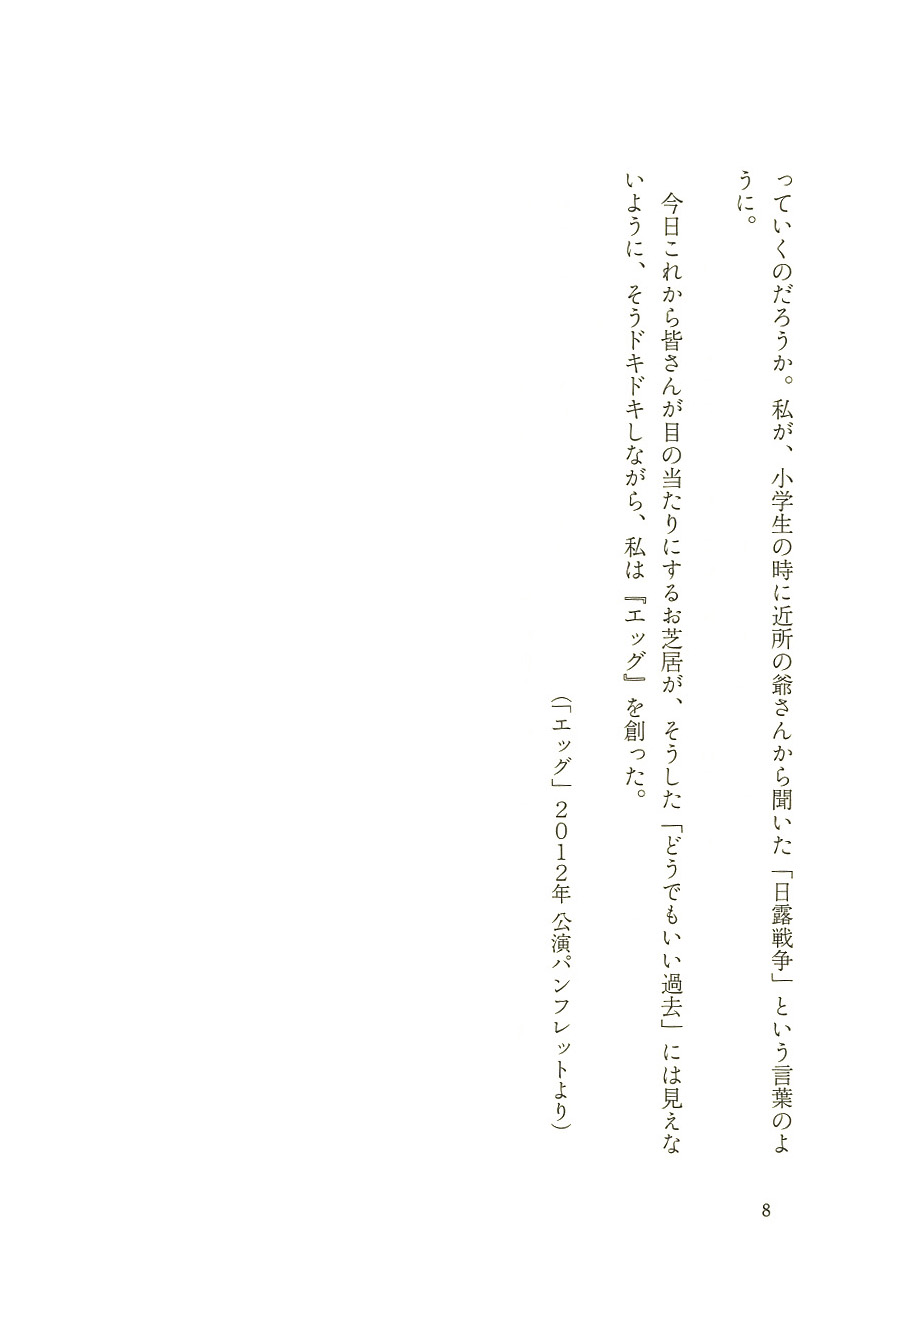 っていくのだろうか。私が、小学生の時に近所の爺さんから聞いた「日露戦争」という言葉のよ
うに。
今日これから皆さんが目の当たりにするお芝居が、そうした「どうでもいい過去」には見えな
いように、そうドキドキしながら、私は『エッグ』を創った。
（「エッグ」2012年 公演パンフレットより）
8